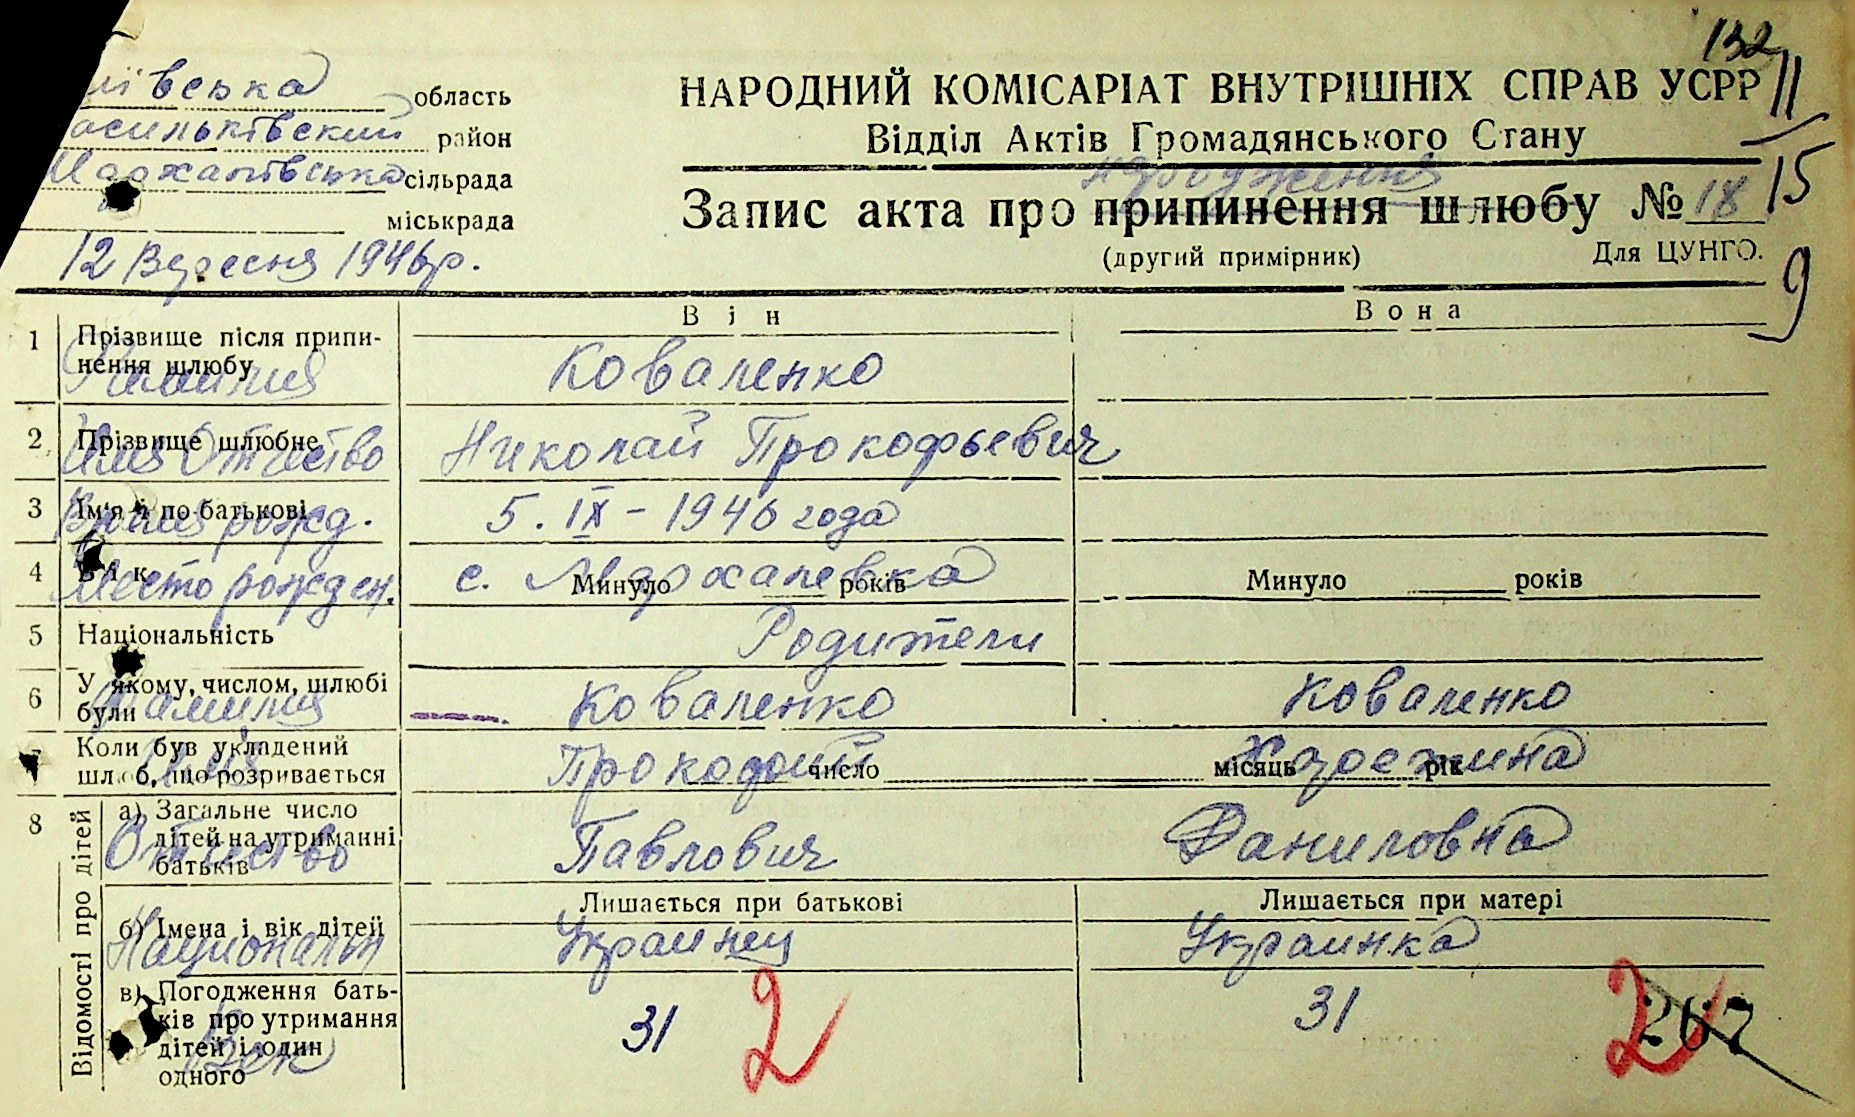 132
11
15
9
івська область
асильківский район
Мархалівська сільрада
міськрада
12 Вересня 1946р.
НАРОДНИЙ КОМІСАРІАТ ВНУТРІШНІХ СПРАВ УСРР
Відділ Актів Громадянського Стану
народження
Запис акта про припинення шлюбу № 18
(другий примірник) Для ЦУНГО.
Він Вона
1 Прізвище після припинення шлюбу
Фамилия Коваленко
2 Прізвище шлюбне
Имя Отчество Николай Прокофьевич
3 Ім'я й по батькові
Время рожд. 5. IX - 1946 года
4 Вік Минуло років Минуло років
Место рожден. с. Мархалевка
5 Національність Родители
6 У якому, числом, шлюбі були
Фамилия Коваленко Коваленко
7 Коли був укладений шлюб, що розривається число місяць рік
Имя Прокофий
8 Відомості про дітей
а) Загальне число дітей на утриманні батьків
Отчество Павлович Даниловна
Лишається при батькові Лишається при матері
б) Імена і вік дітей
Национальн Украинец Украинка
в) Погодження батьків про утримання дітей і один одного
Век 31 31
2 2
267